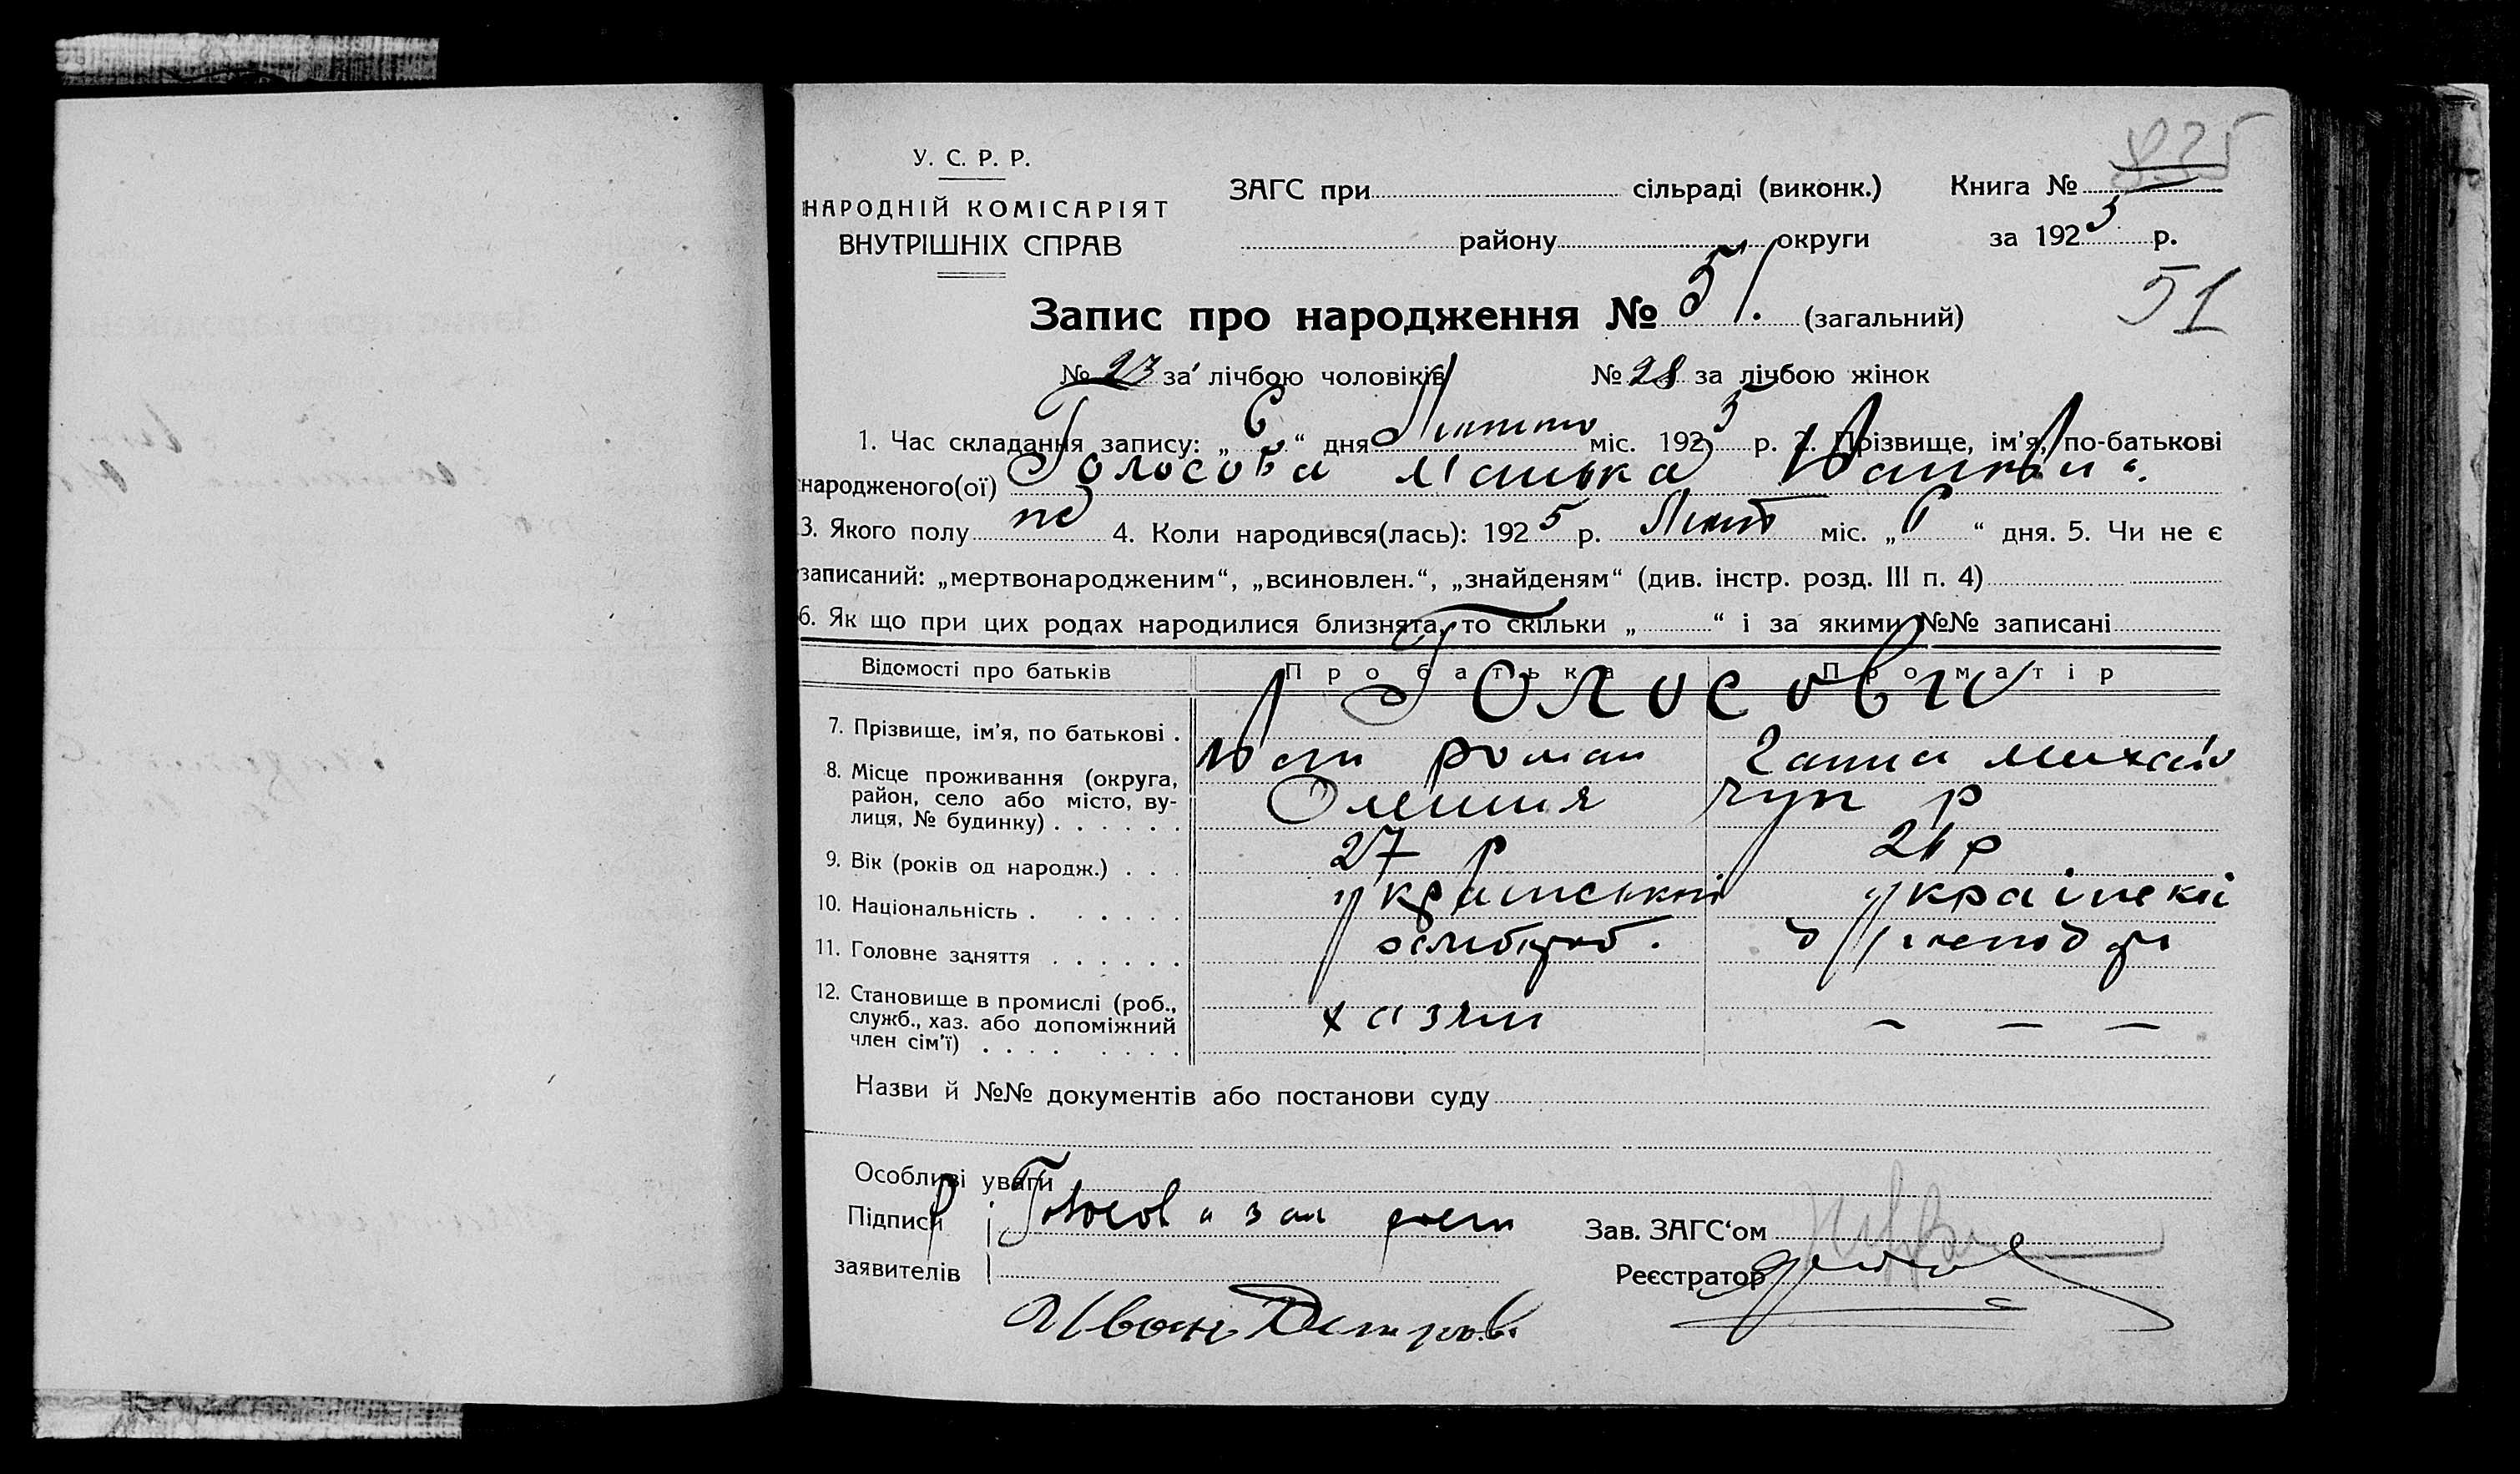 825
У. С. Р. Р.
НАРОДНІЙ КОМІСАРІЯТ
ВНУТРІШНІХ СПРАВ
ЗАГС при сільраді (виконк.) Книга №
району округи за 1925 р.
51
Запис про народження № 51. (загальний)
№ 23 за лічбою чоловіків № 28 за лічбою жінок
1. Час складання запису: „6“ дня Лютого міс. 1925 р. 2. Прізвище, ім'я, по-батькові
народженого(ої) Голосова Манька
3. Якого полу 4. Коли народився(лась): 1925 р. Лют міс. „6“ дня. 5. Чи не є
записаний: „мертвонародженим“, „всиновлен.“, „знайденям“ (див. інстр. розд. III п. 4)
6. Як що при цих родах народилися близнята, то скільки „ “ і за якими №№ записані
Відомості про батьків Про батька Про матір
Голосови
7. Прізвище, ім'я, по батькові . роман Ганна Михай
8. Місце проживання (округа,
район, село або місто, ву-
лиця, № будинку) . . . . . . Олешня чуп р
9. Вік (років од народж.) . . . 27 р 21 р
10. Національність . . . . . . український украінскі
11. Головне заняття . . . . . . хлібороб.
12. Становище в промислі (роб.,
служб., хаз. або допоміжний
член сім'ї) . . . . . . . . хазяін — — —
Назви й №№ документів або постанови суду
Особливі уваги
Підписи Голосов
Зав. ЗАГС'ом
заявителів
Реєстратор
Иван